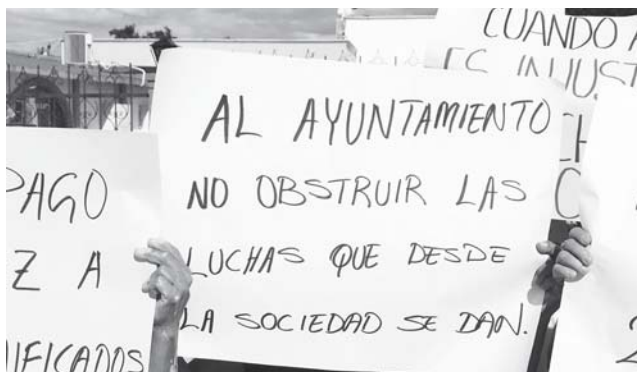 AL AYUNTAMIENTO
NO OBSTRUIR LAS
LUCHAS QUE DESDE
LA SOCIEDAD SE DAN.
PAGO
Z A
IFICADOS
CUANDO
INJUS